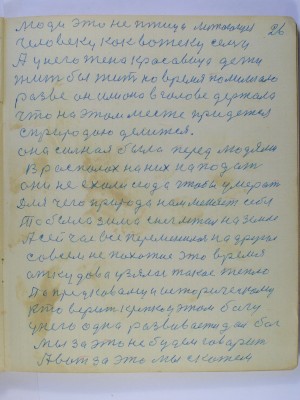 26
люди это не птица летающая
человеку как вожаку семи
А у него жена красавица дети
жит был жит но время поменяло
разве он и кого в голове держала
что на этом месте придется
с природаю делится.
она сильная была перед людями
В располох на них нападат
они не ехали сюда чтобы умерат
для чего природа нам меняет себя
То была зима снег лежал на земле
А сейчас все переменилса на другое
совсем не похожае это время
откуда взялас такое тепло
А по предковаму и историческому
кто верит этому богу
у него одна развивается дал бог
мы за это не будем говорит
А вот за это мы скажем